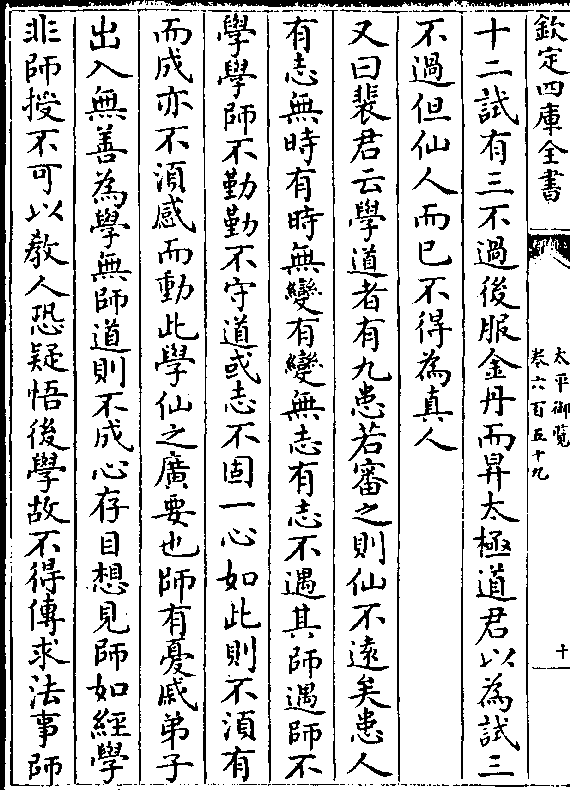 欽定四庫全書
太平御覽
卷六百五十九
十
十二試有三不過後服金丹而昇太極道君以為試三
不過但仙人而已不得為真人
又曰裴君云學道者有九患若審之則仙不遠矣患人
有志無時有時無變有變無志有志不遇其師遇師不
學學師不勤勤不守道或志不固一心如此則不湏有
而成亦不湏感而動此學仙之廣要也師有憂戚弟子
出入無善為學無師道則不成心存目想見師如經學
非師授不可以教人恐疑悟後學故不得傳求法事師